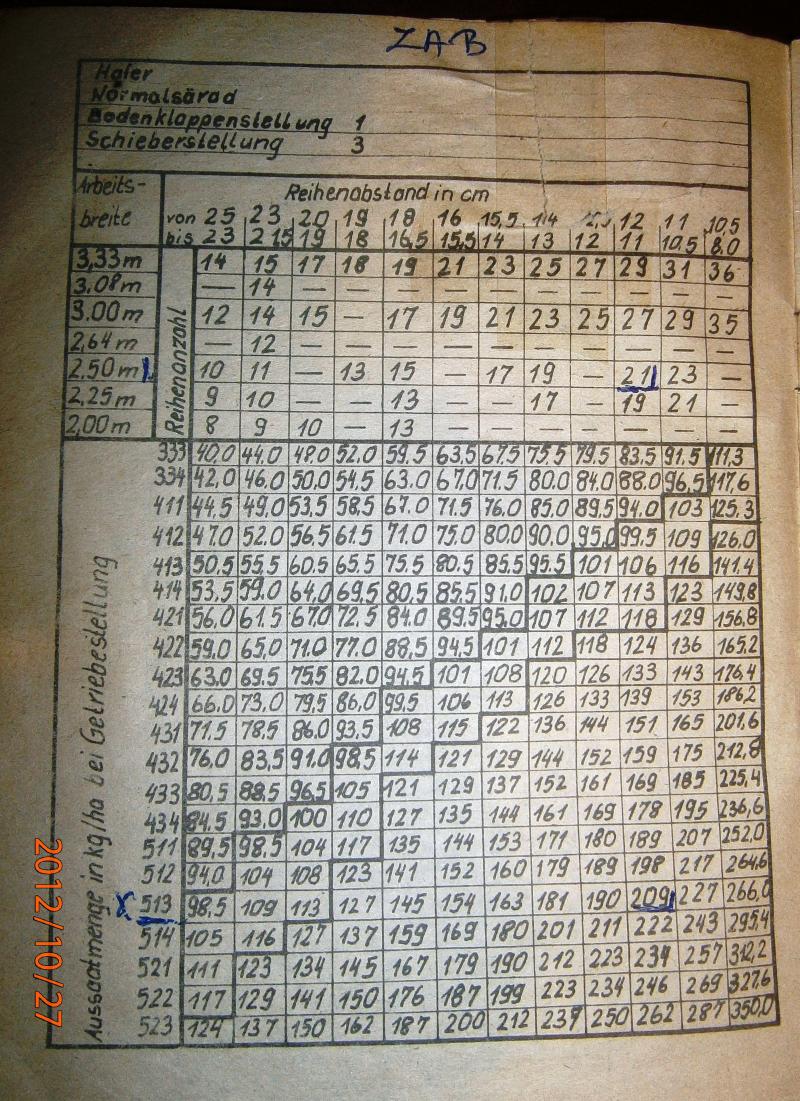 ZAB
Hafer
Normalsärad
Bodenklappenstellung 1
Schieberstellung 3
Arbeits-breite
Reihenabstand in cm
von 25 23 20 19 18 16 15,5 14 12 11 10,5
bis 23 21,5 19 18 16,5 15,5 14 13 12 11 10,5 8,0
Reihenanzahl
3,33m 14 15 17 18 19 21 23 25 27 29 31 36
3.08m — 14 — — — — — — — — — —
3.00m 12 14 15 — 17 19 21 23 25 27 29 35
2,64m — 12 — — — — — — — — — —
2.50m 10 11 — 13 15 — 17 19 — 21 23 —
2,25m 9 10 — — 13 — — 17 — 19 21 —
2,00m 8 9 10 — 13 — — — — — — —
Aussaatmenge in kg/ha bei Getriebestellung
333 40,0 44,0 48,0 52.0 59,5 63,5 67,5 75,5 79,5 83,5 91,5 111,3
334 42,0 46,0 50,0 54,5 63.0 67,0 71,5 80.0 84,0 88,0 96,5 117,6
411 44,5 49,0 53,5 58,5 67.0 71,5 76,0 85,0 89,5 94,0 103 125,3
412 47,0 52,0 56,5 61,5 71,0 75,0 80,0 90,0 95,0 99,5 109 126,0
413 50,5 55,5 60,5 65,5 75,5 80,5 85,5 95,5 101 106 116 141,4
414 53,5 59,0 64,0 69,5 80,5 85,5 91,0 102 107 113 123 149,8
421 56,0 61,5 67,0 72,5 84,0 89,5 95,0 107 112 118 129 156,8
422 59,0 65,0 71,0 77,0 88,5 94,5 101 112 118 124 136 165,2
423 63,0 69,5 75,5 82,0 94,5 101 108 120 126 133 143 176,4
424 66,0 73,0 79,5 86,0 99,5 106 113 126 133 139 153 186,2
431 71,5 78,5 86,0 93,5 108 115 122 136 144 151 165 201,6
432 76,0 83,5 91,0 98,5 114 121 129 144 152 159 175 212,8
433 80,5 88,5 96,5 105 121 129 137 152 161 169 185 225,4
434 84,5 93,0 100 110 127 135 144 161 169 178 195 236,6
511 89,5 98,5 104 117 135 144 153 171 180 189 207 252,0
512 94,0 104 108 123 141 152 160 179 189 198 217 264,6
x 513 98,5 109 113 127 145 154 163 181 190 209 227 266,0
514 105 116 127 137 159 169 180 201 211 222 243 295,4
521 111 123 134 145 167 179 190 212 223 234 257 312,2
522 117 129 141 150 176 187 199 223 234 246 269 327,6
523 124 137 150 162 187 200 212 237 250 262 287 350,0
2012/10/27